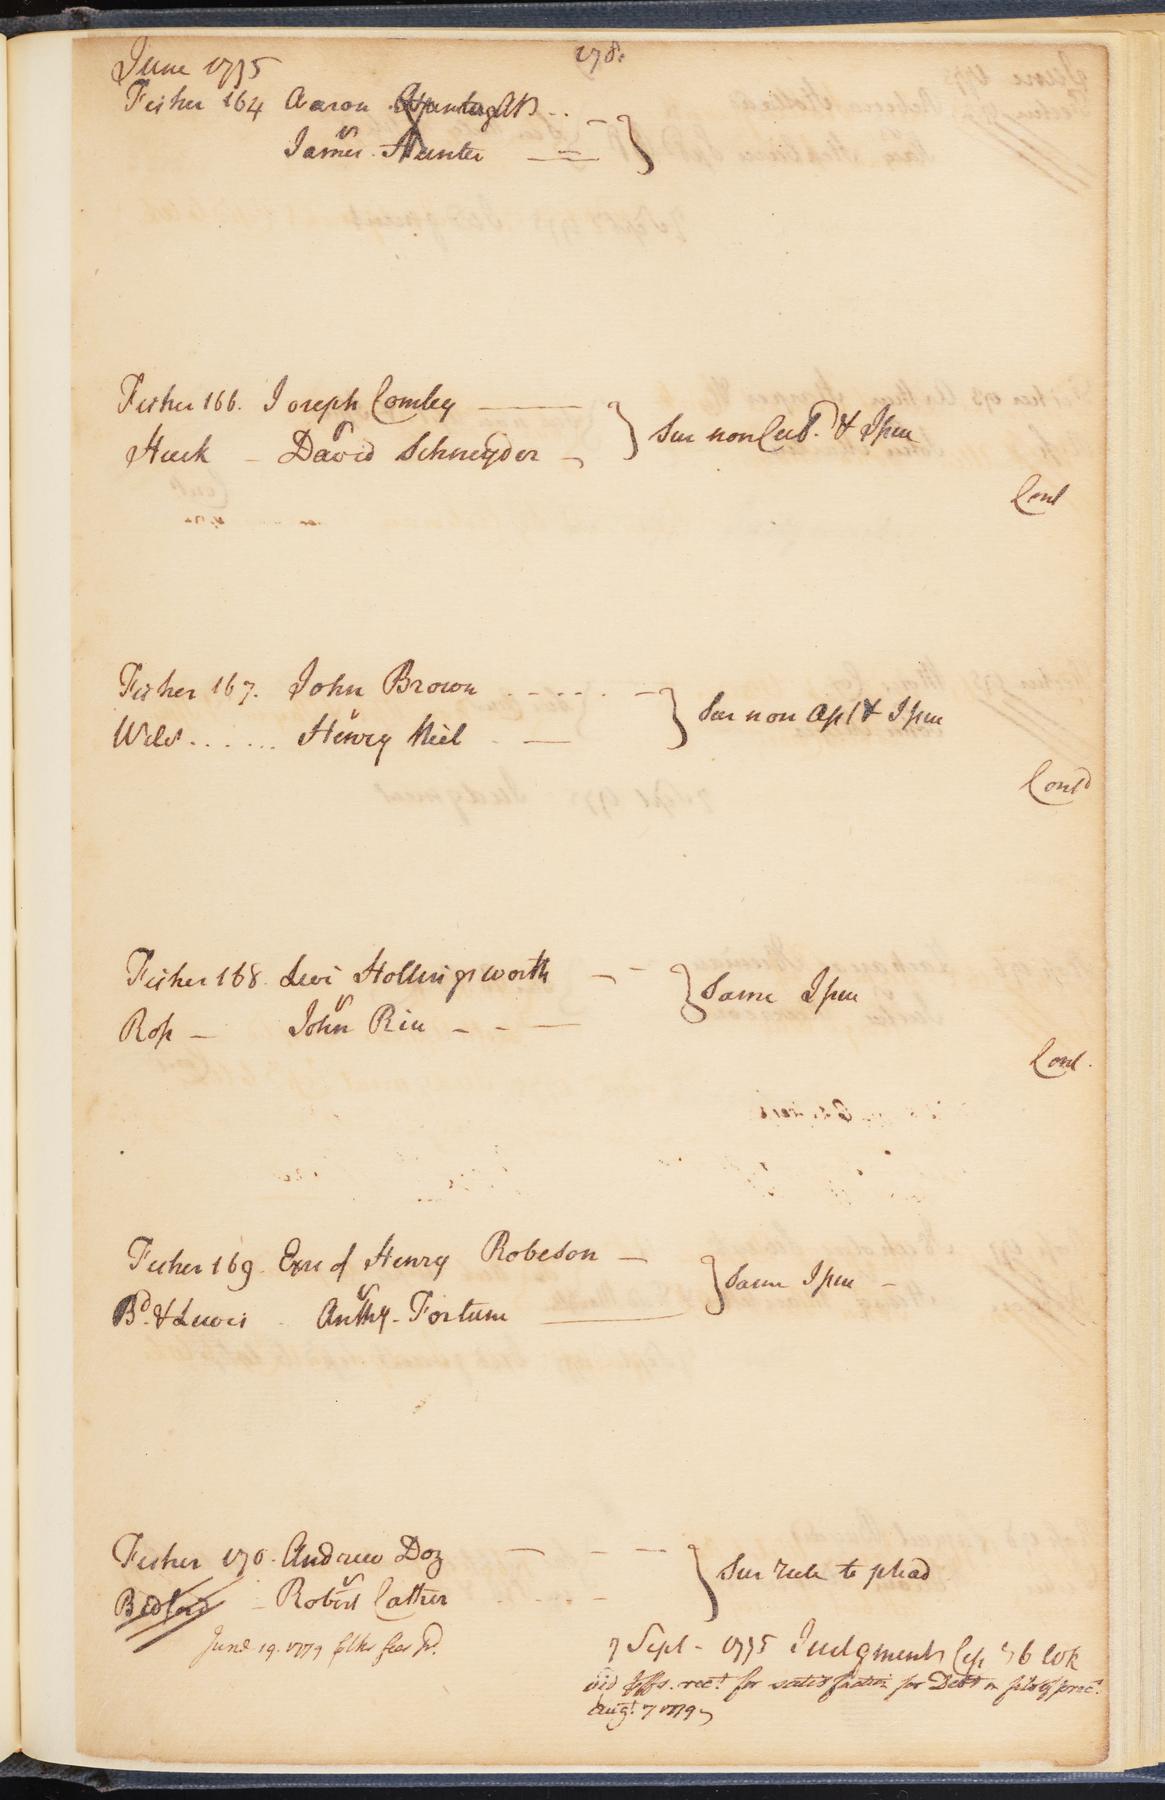 June 1775
178.
Fisher 164 Aaron
vs
James Hunter
Fisher 166. Joseph Comley
vs
Huck - David Schneyder
Sur non Cul. & Ipue
Cont
Fisher 167. John Brown
vs
Wils . . . . . . Henry Kiel
Sur non Aspt & Ipue
Contd
Fisher 168. Levi Hollingsworth
vs
Ross - John Rice
Same Ipue
Cont.
Fisher 169 Exrs of Henry Robeson
vs
Bd. & Lewis Anthy. Fortune
Same Ipue
Fisher 170. Andrew Doz
vs
Bedford - Robert Cather
Sur rule to plead
June 19. 1779 fees pd.
7 Sept - 1775 Judgment
vid rect. for satisfaction for Debt
Augt. 7 1779